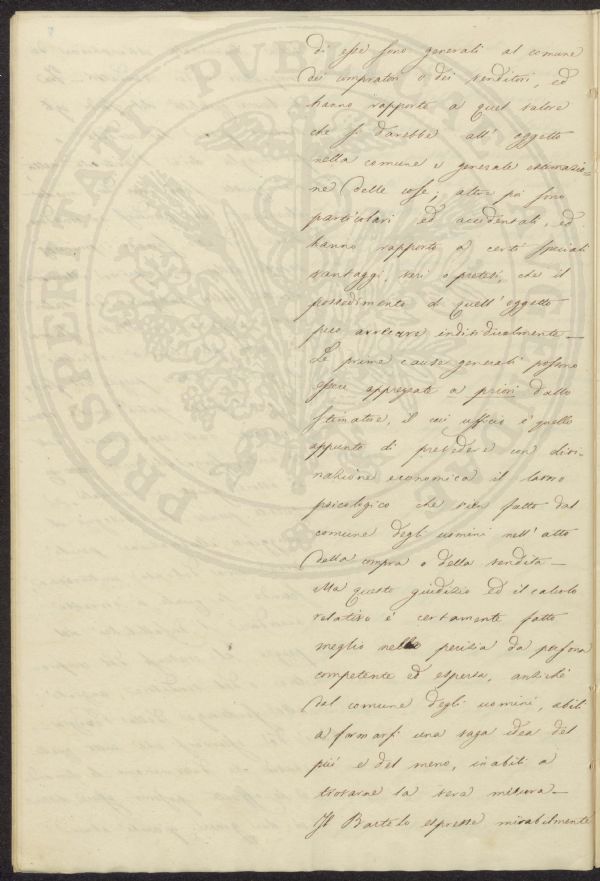 di esse sono generali al comune
dei compratori o dei venditori, ed
hanno rapporto a quel valore
che si darebbe all' oggetto
nella comune e generale estimazio=
ne delle cose; altre poi sono
particolari ed accidentali, ed
hanno rapporto a certi speciali
vantaggi, veri o pretesi, che il
possedimento di quell' oggetto
può arrecare individualmente —
Le prime cause generali possono
essere apprezzate a priori dallo
stimatore, il cui ufficio è quello
appunto di prevedere con divi-
nazione economica il lavoro
psicologico che vien fatto dal
comune degli uomini nell' atto
della compra o della vendita —
Ma questo giudizio ed il calcolo
relativo è certamente fatto
meglio nella perizia da persona
competente ed esperta, anziché
dal comune degli uomini, abili
a formarsi una vaga idea del
più e del meno, inabili a
trovarne la vera misura —
Il Bartolo espresse mirabilmente
PROSPERITATI PVBLICAE